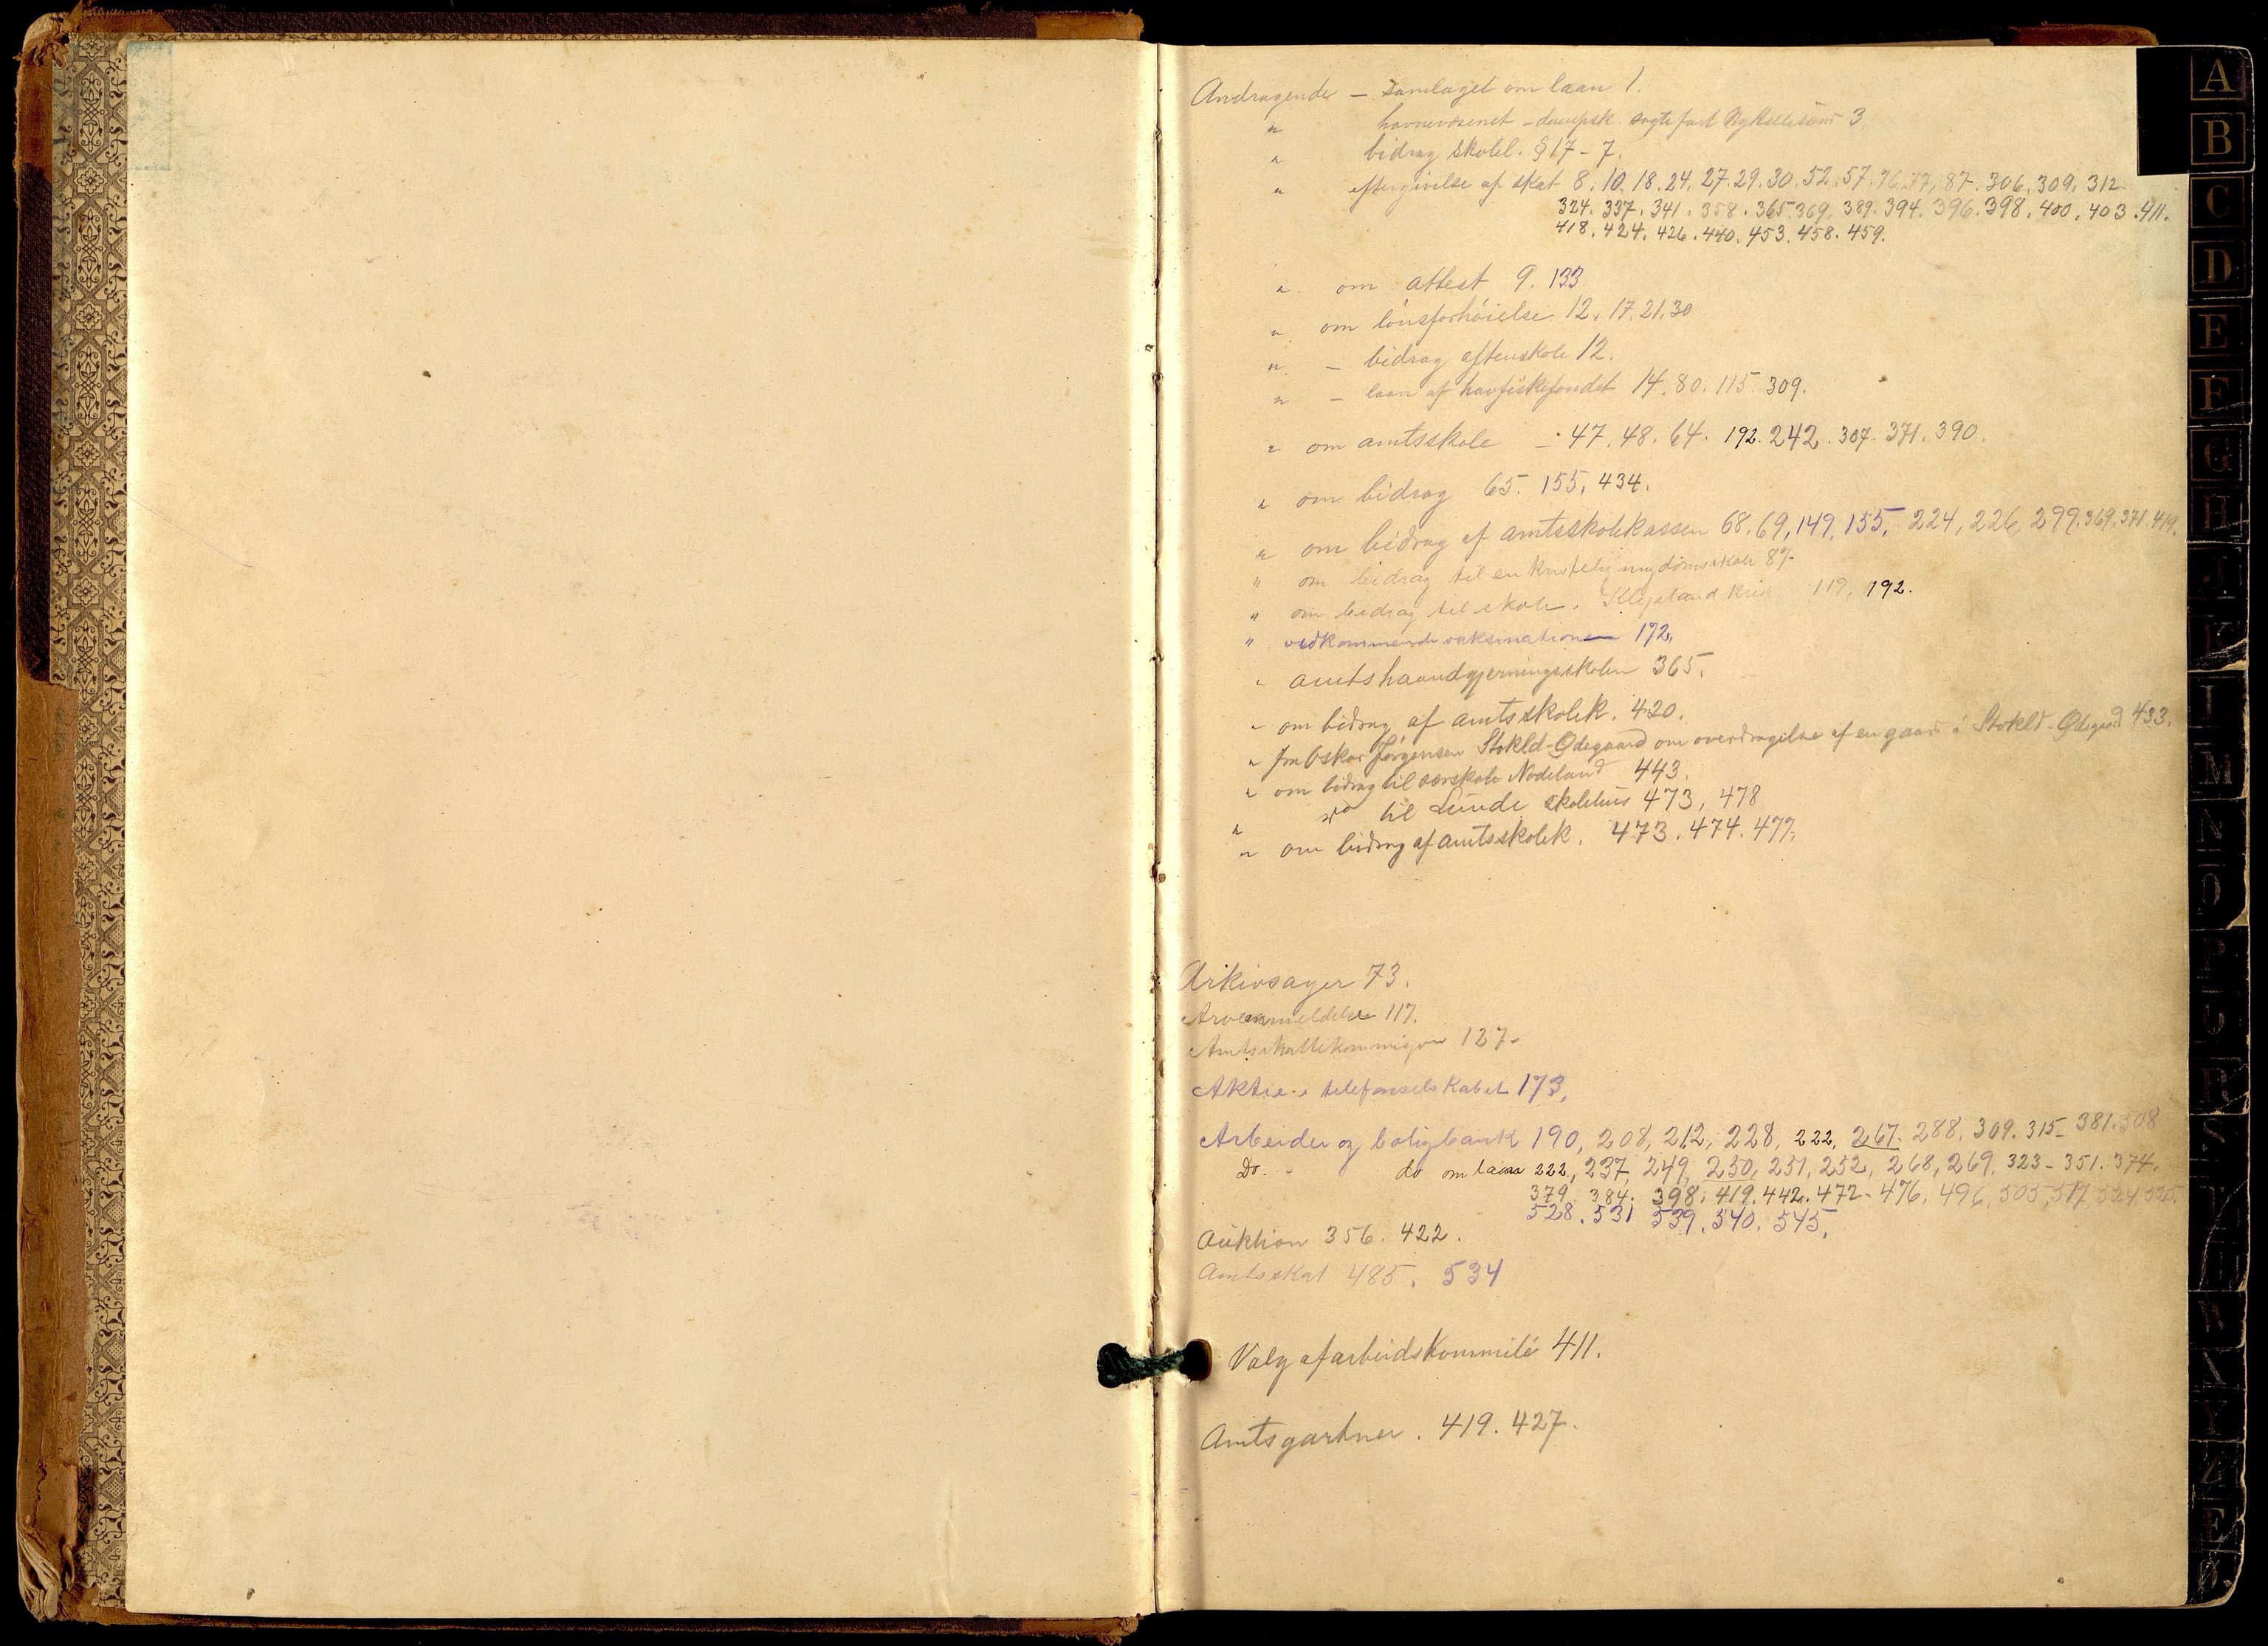 Andragende – Samlaget om laan 1.
" havnevæsenet – dampsk. sagte fart 3
" bidrag skolel. § 17 – 7.
" eftergivelse af skat 8. 10. 18. 24. 27. 29. 30. 52. 57. 76. 77, 87. 306. 309. 312.
324. 337. 341. 358. 365. 369. 389. 394. 396. 398. 400. 403. 411.
418. 424. 426. 440. 453. 458. 459.
" om attest 9. 133
" om lönsforhöielse 12. 17. 21. 30
" – bidrag aftenskole 12.
" – laan af havfiskefondet 14. 80. 115. 309.
" om amtsskole – 47. 48. 64. 192. 242. 307. 371. 390.
" om bidrag 65. 155. 434.
" om bidrag af amtsskolekassen 68. 69, 149, 155, 224, 226, 299. 369. 371. 419.
" om bidrag til en kristelig ungdomsskole 87
" om bidrag til skole. 119, 192.
" vedkommende vaksinationen 172,
" amtshaandgjerningsskolen 365.
" om bidrag af amtsskolek. 420.
" fra Oskar Jörgensen Stokld-Ødegaard om overdragelse af en gaard i Stokld-Ødegård 433.
" om bidrag til Nodeland 443.
" do til Lunde skolehus 473, 478
" om bidrag af amtsskolek. 473. 474. 477.
Arkivsager 73.
Arveanmeldelse 117.
Amtsskattekommisjon 127–
Aktie i telefonselskabet 173,
Arbeider og boligbank 190, 208, 212, 228, 222, 267. 288. 309. 315– 381. 508
Do. do om laan 222, 237, 249, 250, 251, 252, 268, 269. 323 – 351. 374.
379. 384. 398. 419. 442. 472– 476. 496, 505, 517 524. 525.
528. 531 539. 540. 545.
Auktion 356. 422.
Amtsskat 485. 534
Valg af arbeidskommité 411.
Amtsgartner. 419. 427.
A
B
C
D
E
F
G
H
I
K
L
M
N
O
P
Q
R
S
T
U
V
W
X
Y
Z
Æ
Ø